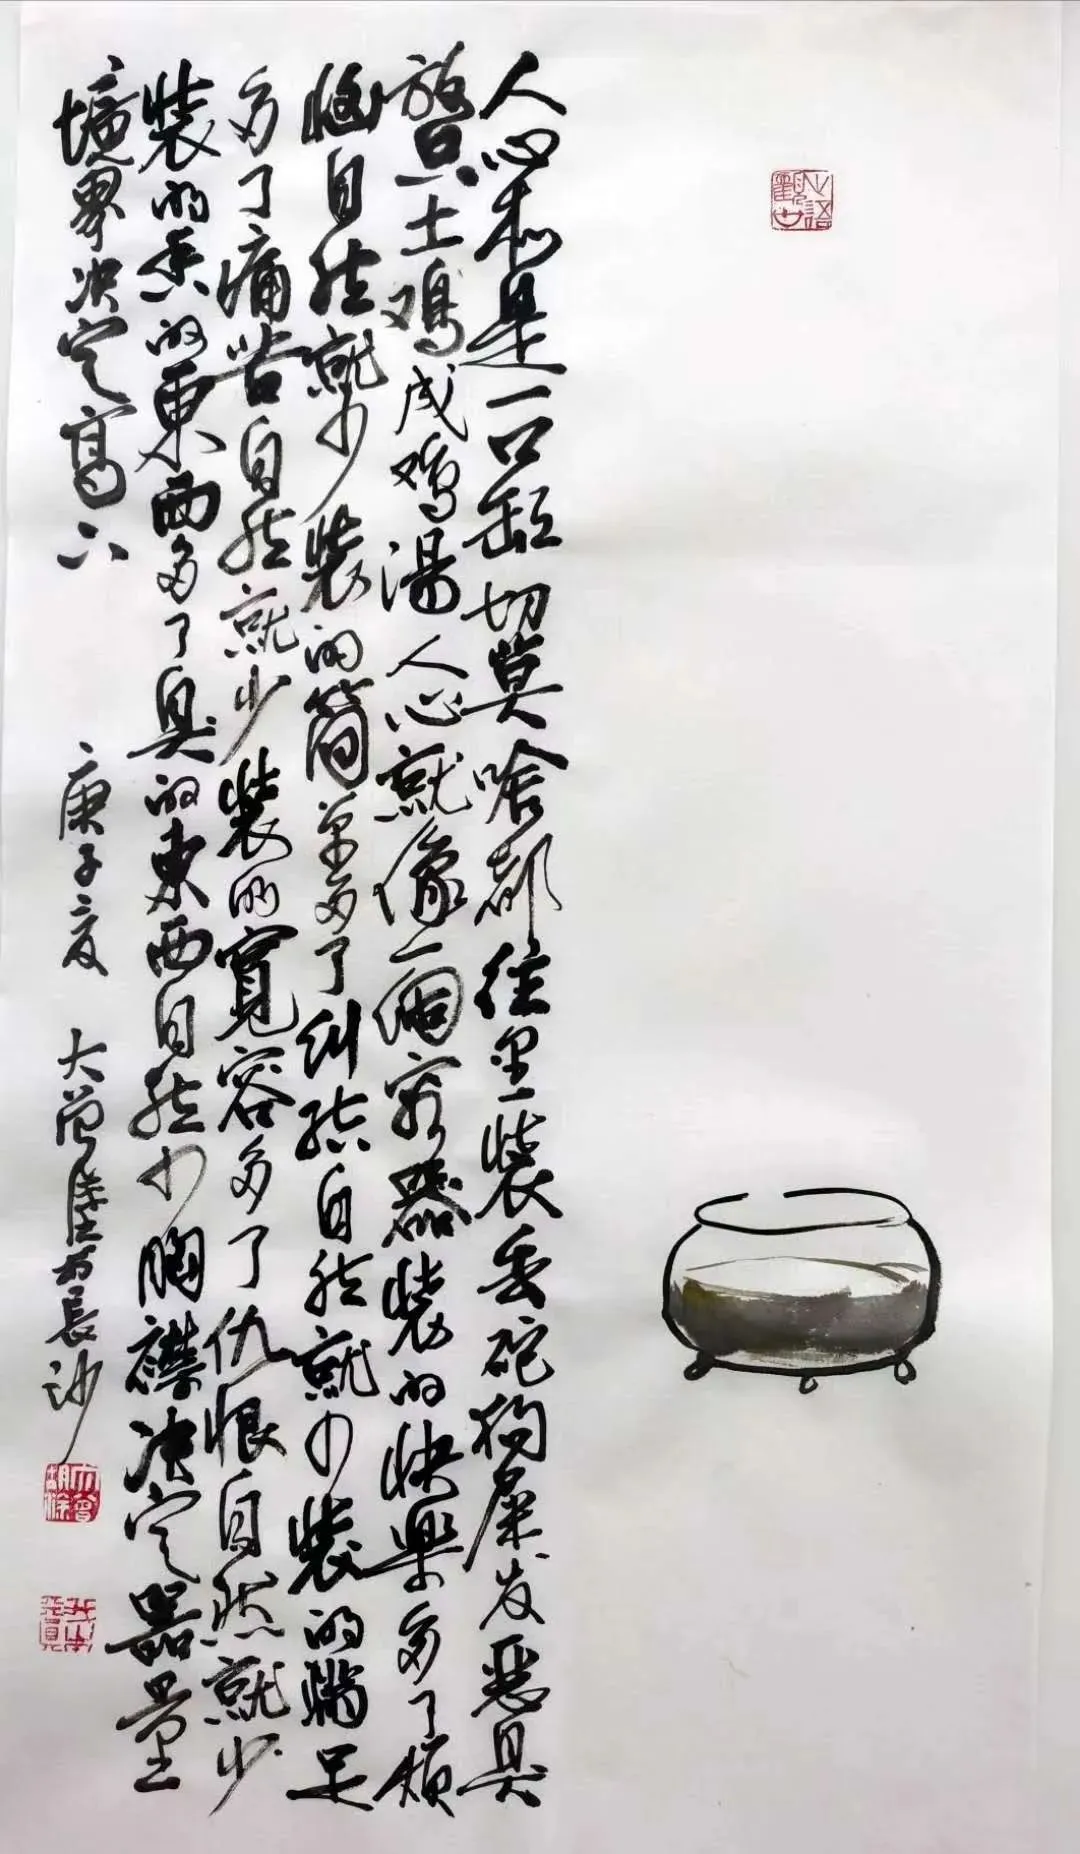 人心本是一口缸切莫啥都往里装砣狗屎发恶臭
放只土鸡成鸡汤人心就像一個容器装的快樂多了烦
恼自然就少装的简单多了纠结自然就少装的满足
多了痛苦自然就少装的寬容多了仇恨自然就少
装的香的東西多了臭的東西自然少胸襟决定器量
境界决定高下
庚子夏 大 長沙